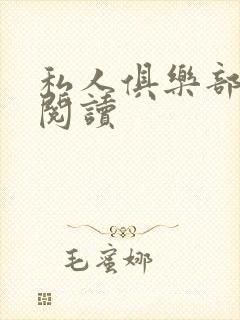 私人俱樂部
閱讀
毛蜜娜